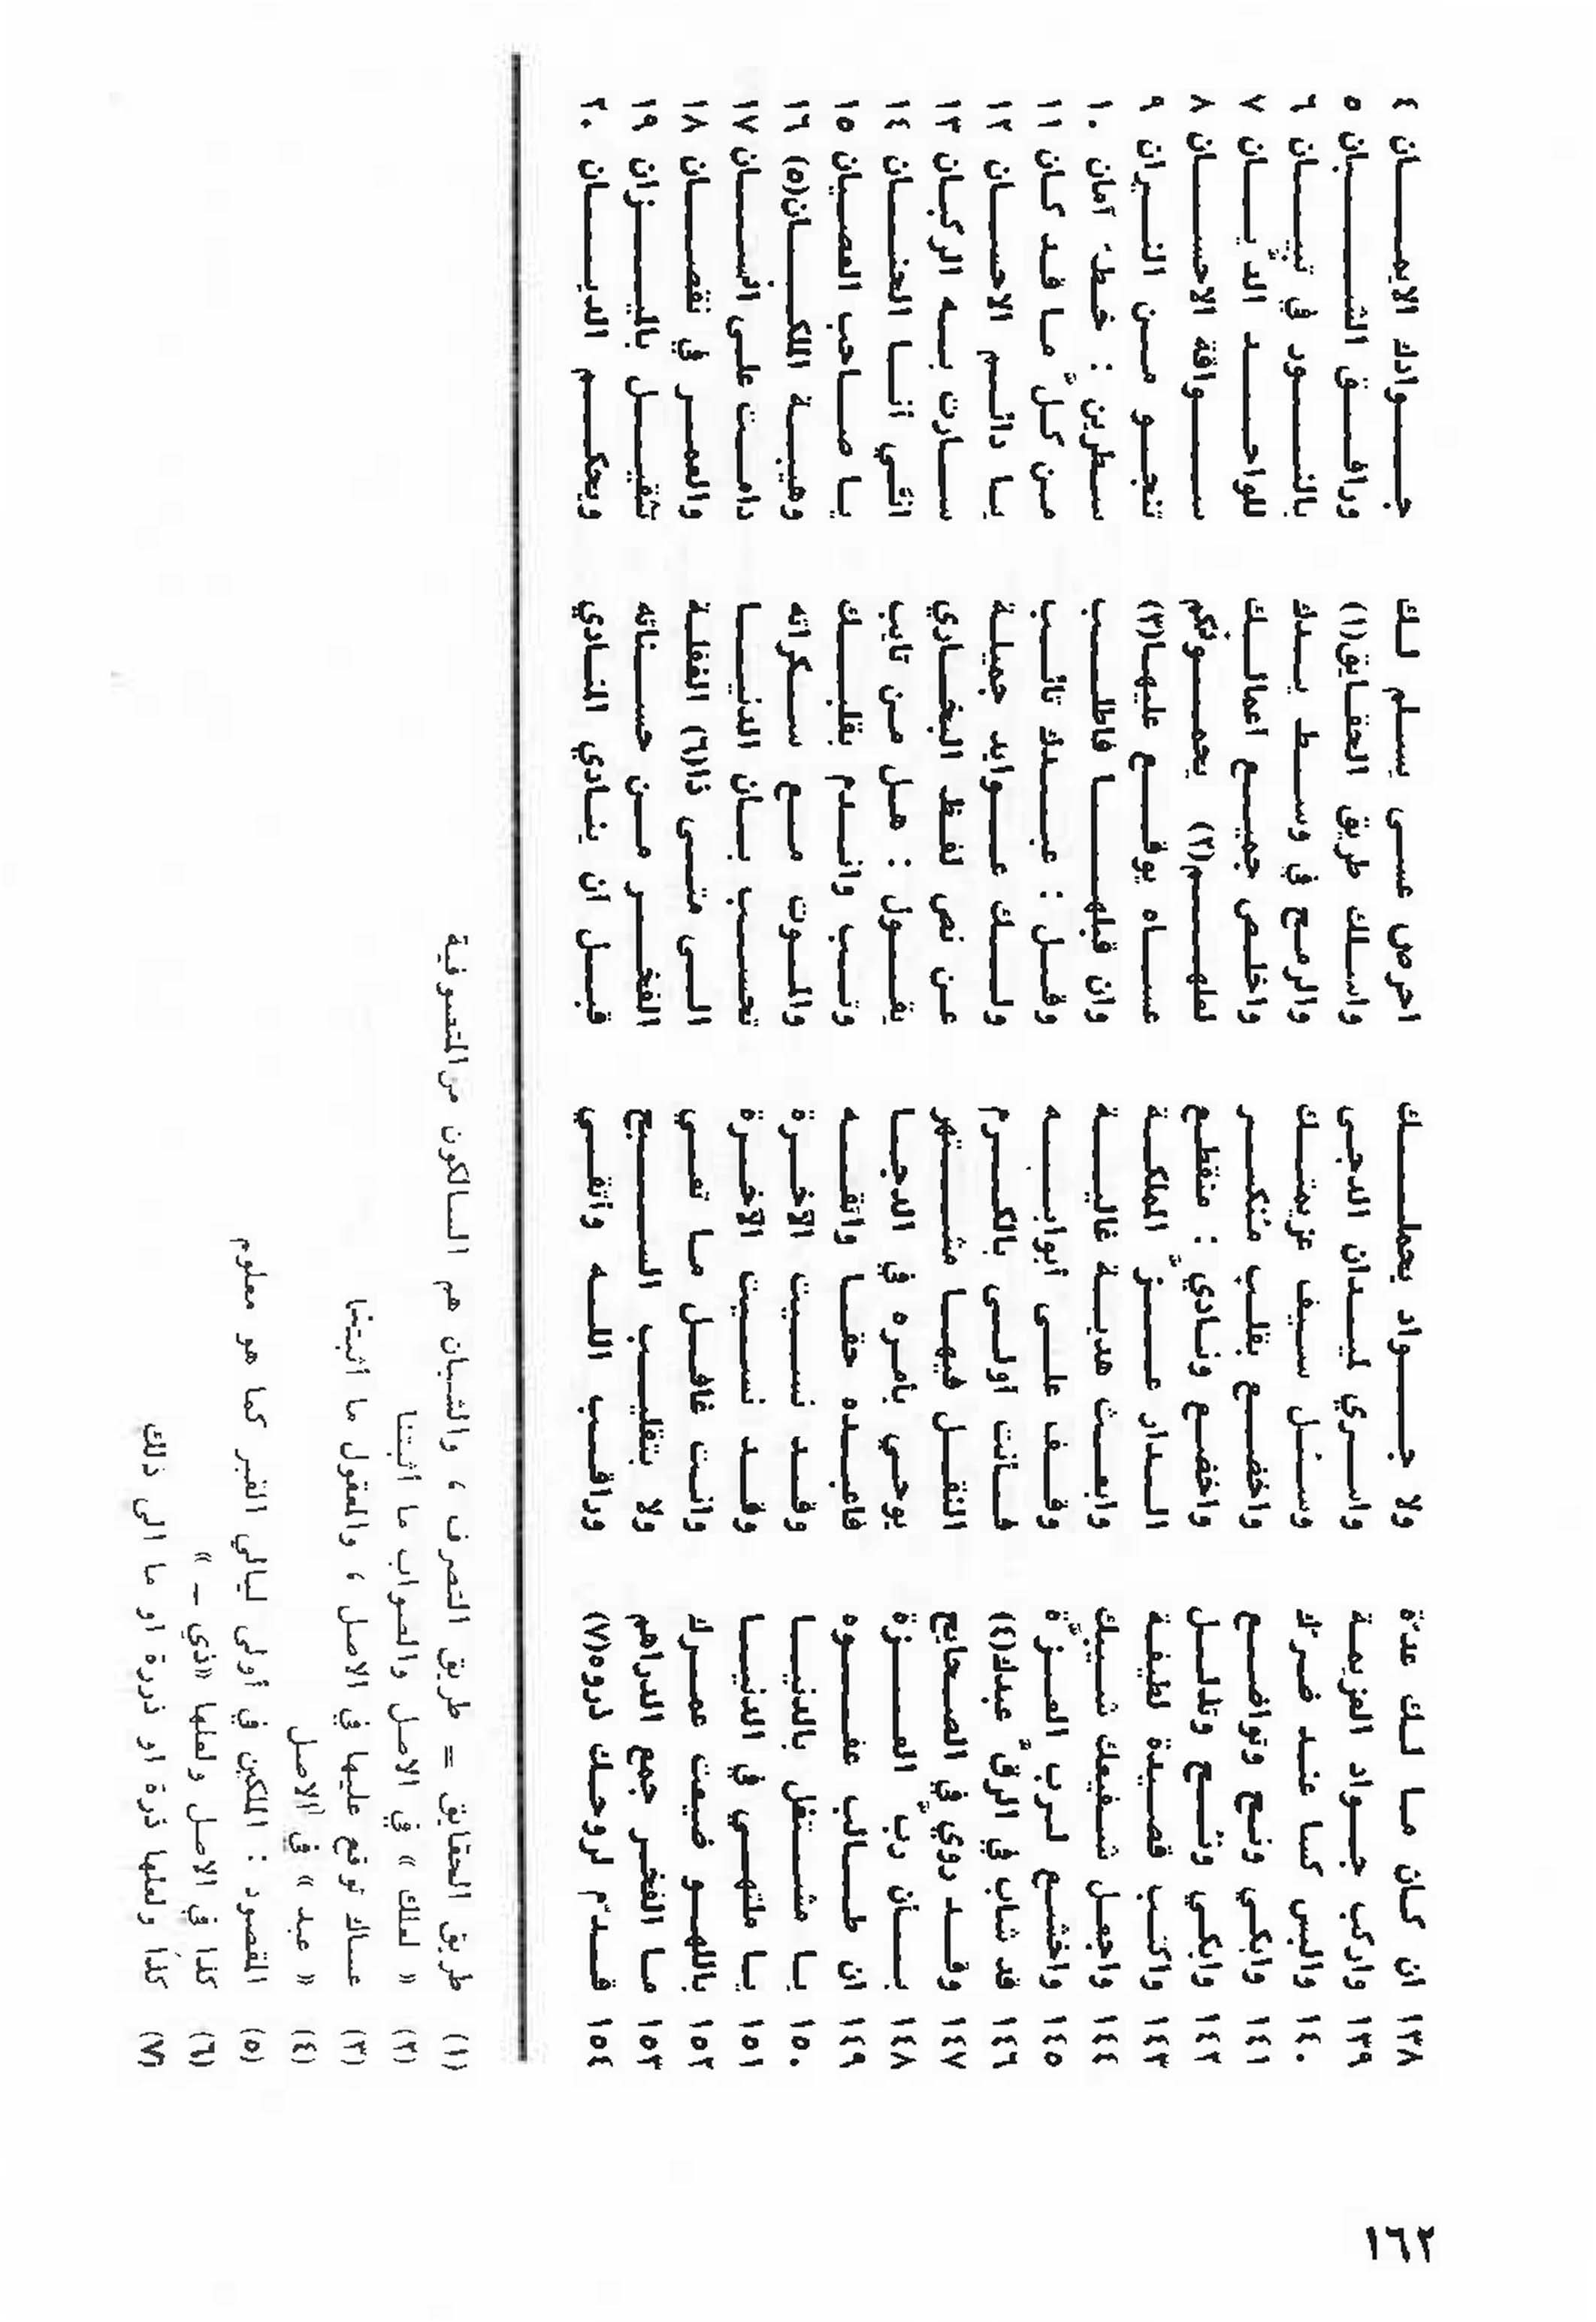 ١٣٨ ان كان ما لك عدّة ولا جواد يحملك احرص عسى يسلم لك جوادك الايمان ٤
١٣٩ واركب جواد العزيمة واسري لميدان الدجى واسلك طريق الحقايق(١) ورافق الشبان ٥
١٤٠ والبس كسا عند ضرك وسل سيف عزيمتك والرمح في وسط يدك بالنور في تبيّان ٦
١٤١ وابكي ونح وتواضع واخضع بقلب منكسر واخلص جميع اعمالك للواحد الديّان ٧
١٤٢ وابكي ونح وتذلل واخضع ونادي : منقطع لعلهم(٢) يحموكم سواقة الاحسان ٨
١٤٣ واكتب قصيدة لطيفة الدار عزّ المملكة عساه يوقع عليها(٣) تنجو من النيران ٩
١٤٤ واجعل شفيعك شيبك وابعث هدية غالية وان قبلها فاطلب سطرين : خط أمان ١٠
١٤٥ واخشع لرب العزّة وقف على أبوابه وقل : عبدك تائب من كلّ ما قد كان ١١
١٤٦ قد شاب في الرقّ عبدك(٤) فأنت أولى بالكرم ولك عوايد جميلة يا دائم الاحسان ١٢
١٤٧ وقد روي في الصحايح النقل فيها مشتهر عن نص لفظ البخاري سارت به الركبان ١٣
١٤٨ بأن ربّ العزة يوحي بأمره في الدجا يقول : هل من تايب انّي أنا الحنان ١٤
١٤٩ ان طالب عفوه فاعبده حقا واتقه وتب واندم بقلبك يا صاحب العصيان ١٥
١٥٠ يا مشتغل بالدنيا وقد نسيت الآخرة والموت مع سكراته وهيبة الملكان(٥) ١٦
١٥١ يا ملتهي في الدنيا وقد نسيت الآخرة تحسب بان الدنيا دامت على انسان ١٧
١٥٢ باللهو ضيعت عمرك وانت غافل ما تعي الى متى ذا(٦) الغفلة والعمر في نقصان ١٨
١٥٣ ما الفخر جمع الدراهم ولا بتقليب السبح الفخر من حسناته تثقيل بالميزان ١٩
١٥٤ قدّم لروحك ذروه(٧) وراقب الله واتقي قبل أن ينادي المنادي ويحكم الديان ٢٠
(١) طريق الحقايق = طريق التصرف ، والشبان هم السالكون من المتصوفية
(٢) « لعلك » في الاصل والصواب ما أثبتنا
(٣) عساك توقع عليها في الاصل ، والمعقول ما اثبتنا
(٤) « عبد » في الاصل
(٥) المقصود : الملكين في أولى ليالي القبر كما هو معلوم
(٦) كذا في الاصل ولعلها «ذي – »
(٧) كذا ولعلها ذرة او ذررة او ما الى ذلك
١٦٢